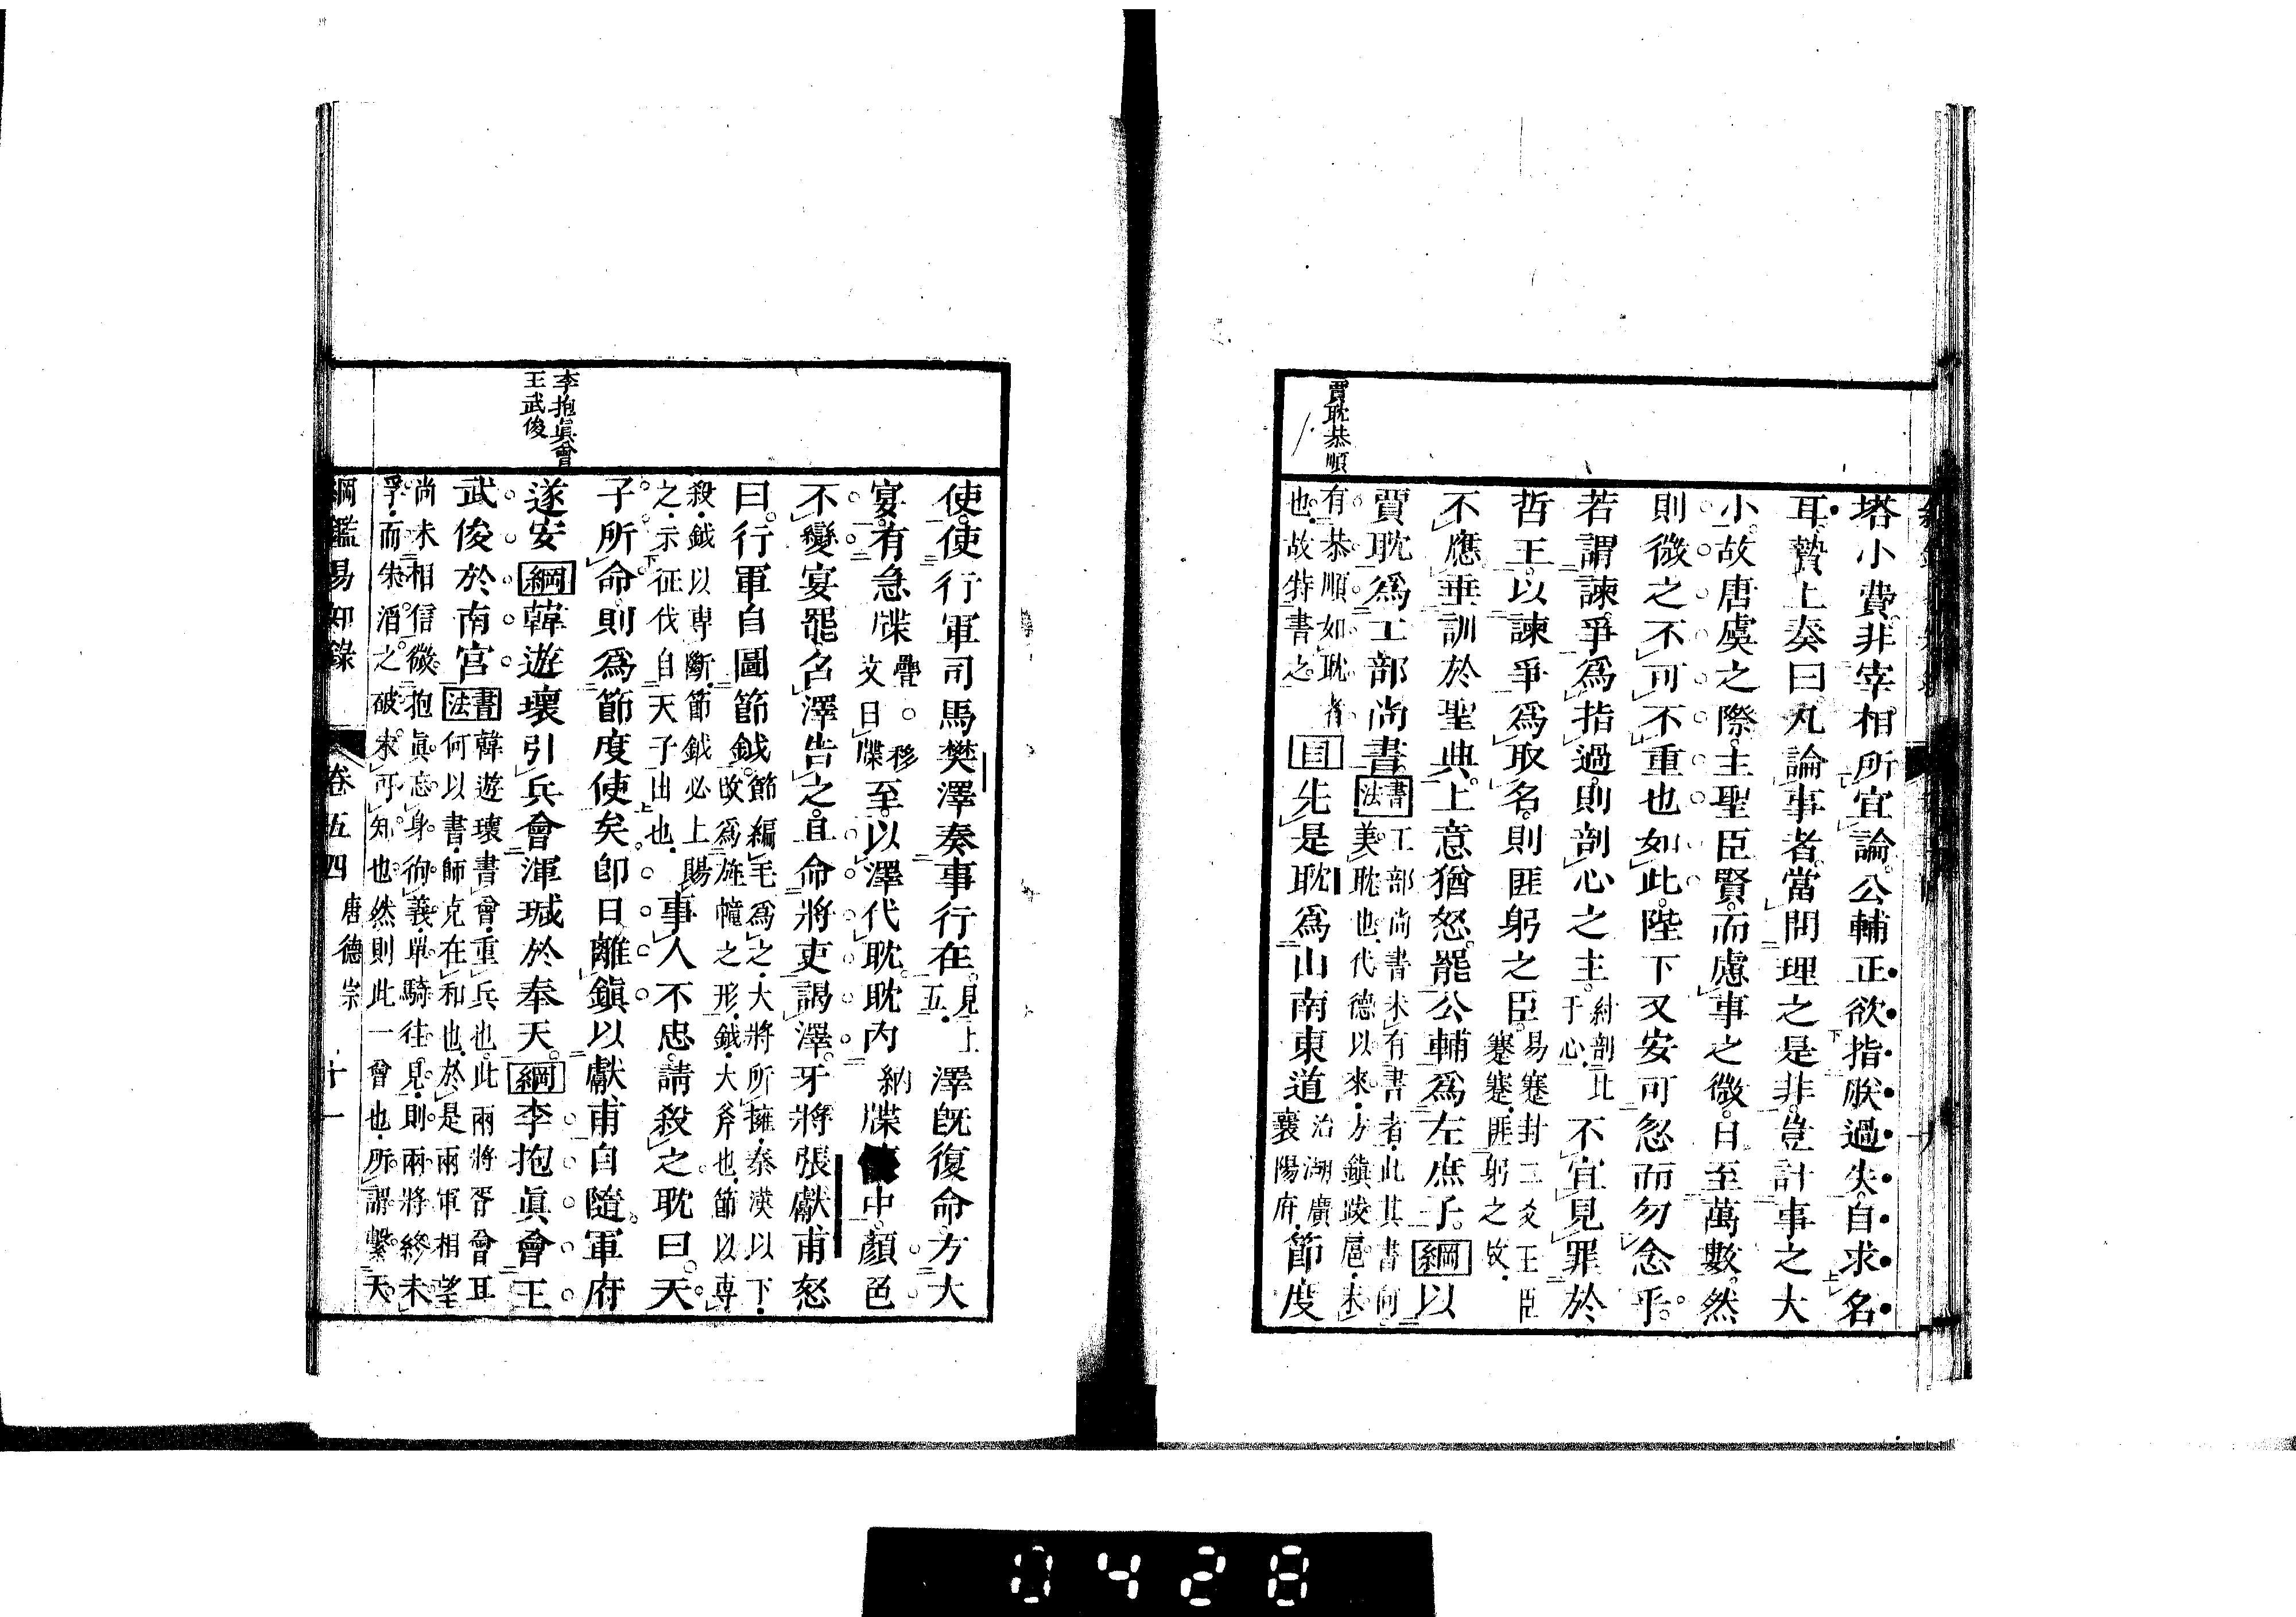 賈耽恭順
塔小費。非宰相所宜論。公輔正欲指朕過失。自求名
耳。贄上奏曰。凡論事者。當問理之是非。豈計事之大
小。故唐虞之際。主聖臣賢。而慮事之微。日至萬數。然
則微之不可不重也如此。陛下又安可忽而勿念乎。
若謂諫爭爲指過。則剖心之主。紂剖比于心。不宜見罪於
哲王。以諫爭爲取名。則匪躬之臣。易蹇封二爻王臣蹇蹇。匪躬之故。
不應垂訓於聖典。上意猶怒。罷公輔爲左庶子。綱以
賈耽爲工部尚書。書法工部尚書未有書者。此其書何。美耽也。代德以來。方鎮跋扈。未
有恭順如耽者也。故特書之。目先是耽爲山南東道治湖廣襄陽府。節度
使。使行軍司馬樊澤奏事行在。見上五。澤旣復命。方大
宴。有急牒疊。移文曰牒至。以澤代耽。耽內納牒懷中。顏色
不變。宴罷。召澤告之。且命將吏謁澤。牙將張獻甫怒
曰。行軍自圖節鉞。節編毛爲之。大將所擁。秦漢以下。改爲旌幢之形。鉞。大斧也。節以專
殺。鉞以專斷。節鉞必上賜之。示征伐自天子出也。事人不忠。請殺之。耽曰。天
子所命。則爲節度使矣。卽日離鎮。以獻甫自隨。軍府
遂安綱韓遊瓌引兵會渾瑊於奉天。綱李抱眞會王
武俊於南宮書法韓遊瓌書會。重兵也。此兩將胥會耳何以書。師克在和也。於是兩軍相望
尚未相信。微抱眞忘身徇義。單騎往見。則兩將終未孚。而朱滔之破。未可知也。然則此一會也。所謂繫天
李抱眞會
王武俊
綱鑑易知錄 卷五四 唐德宗 十一